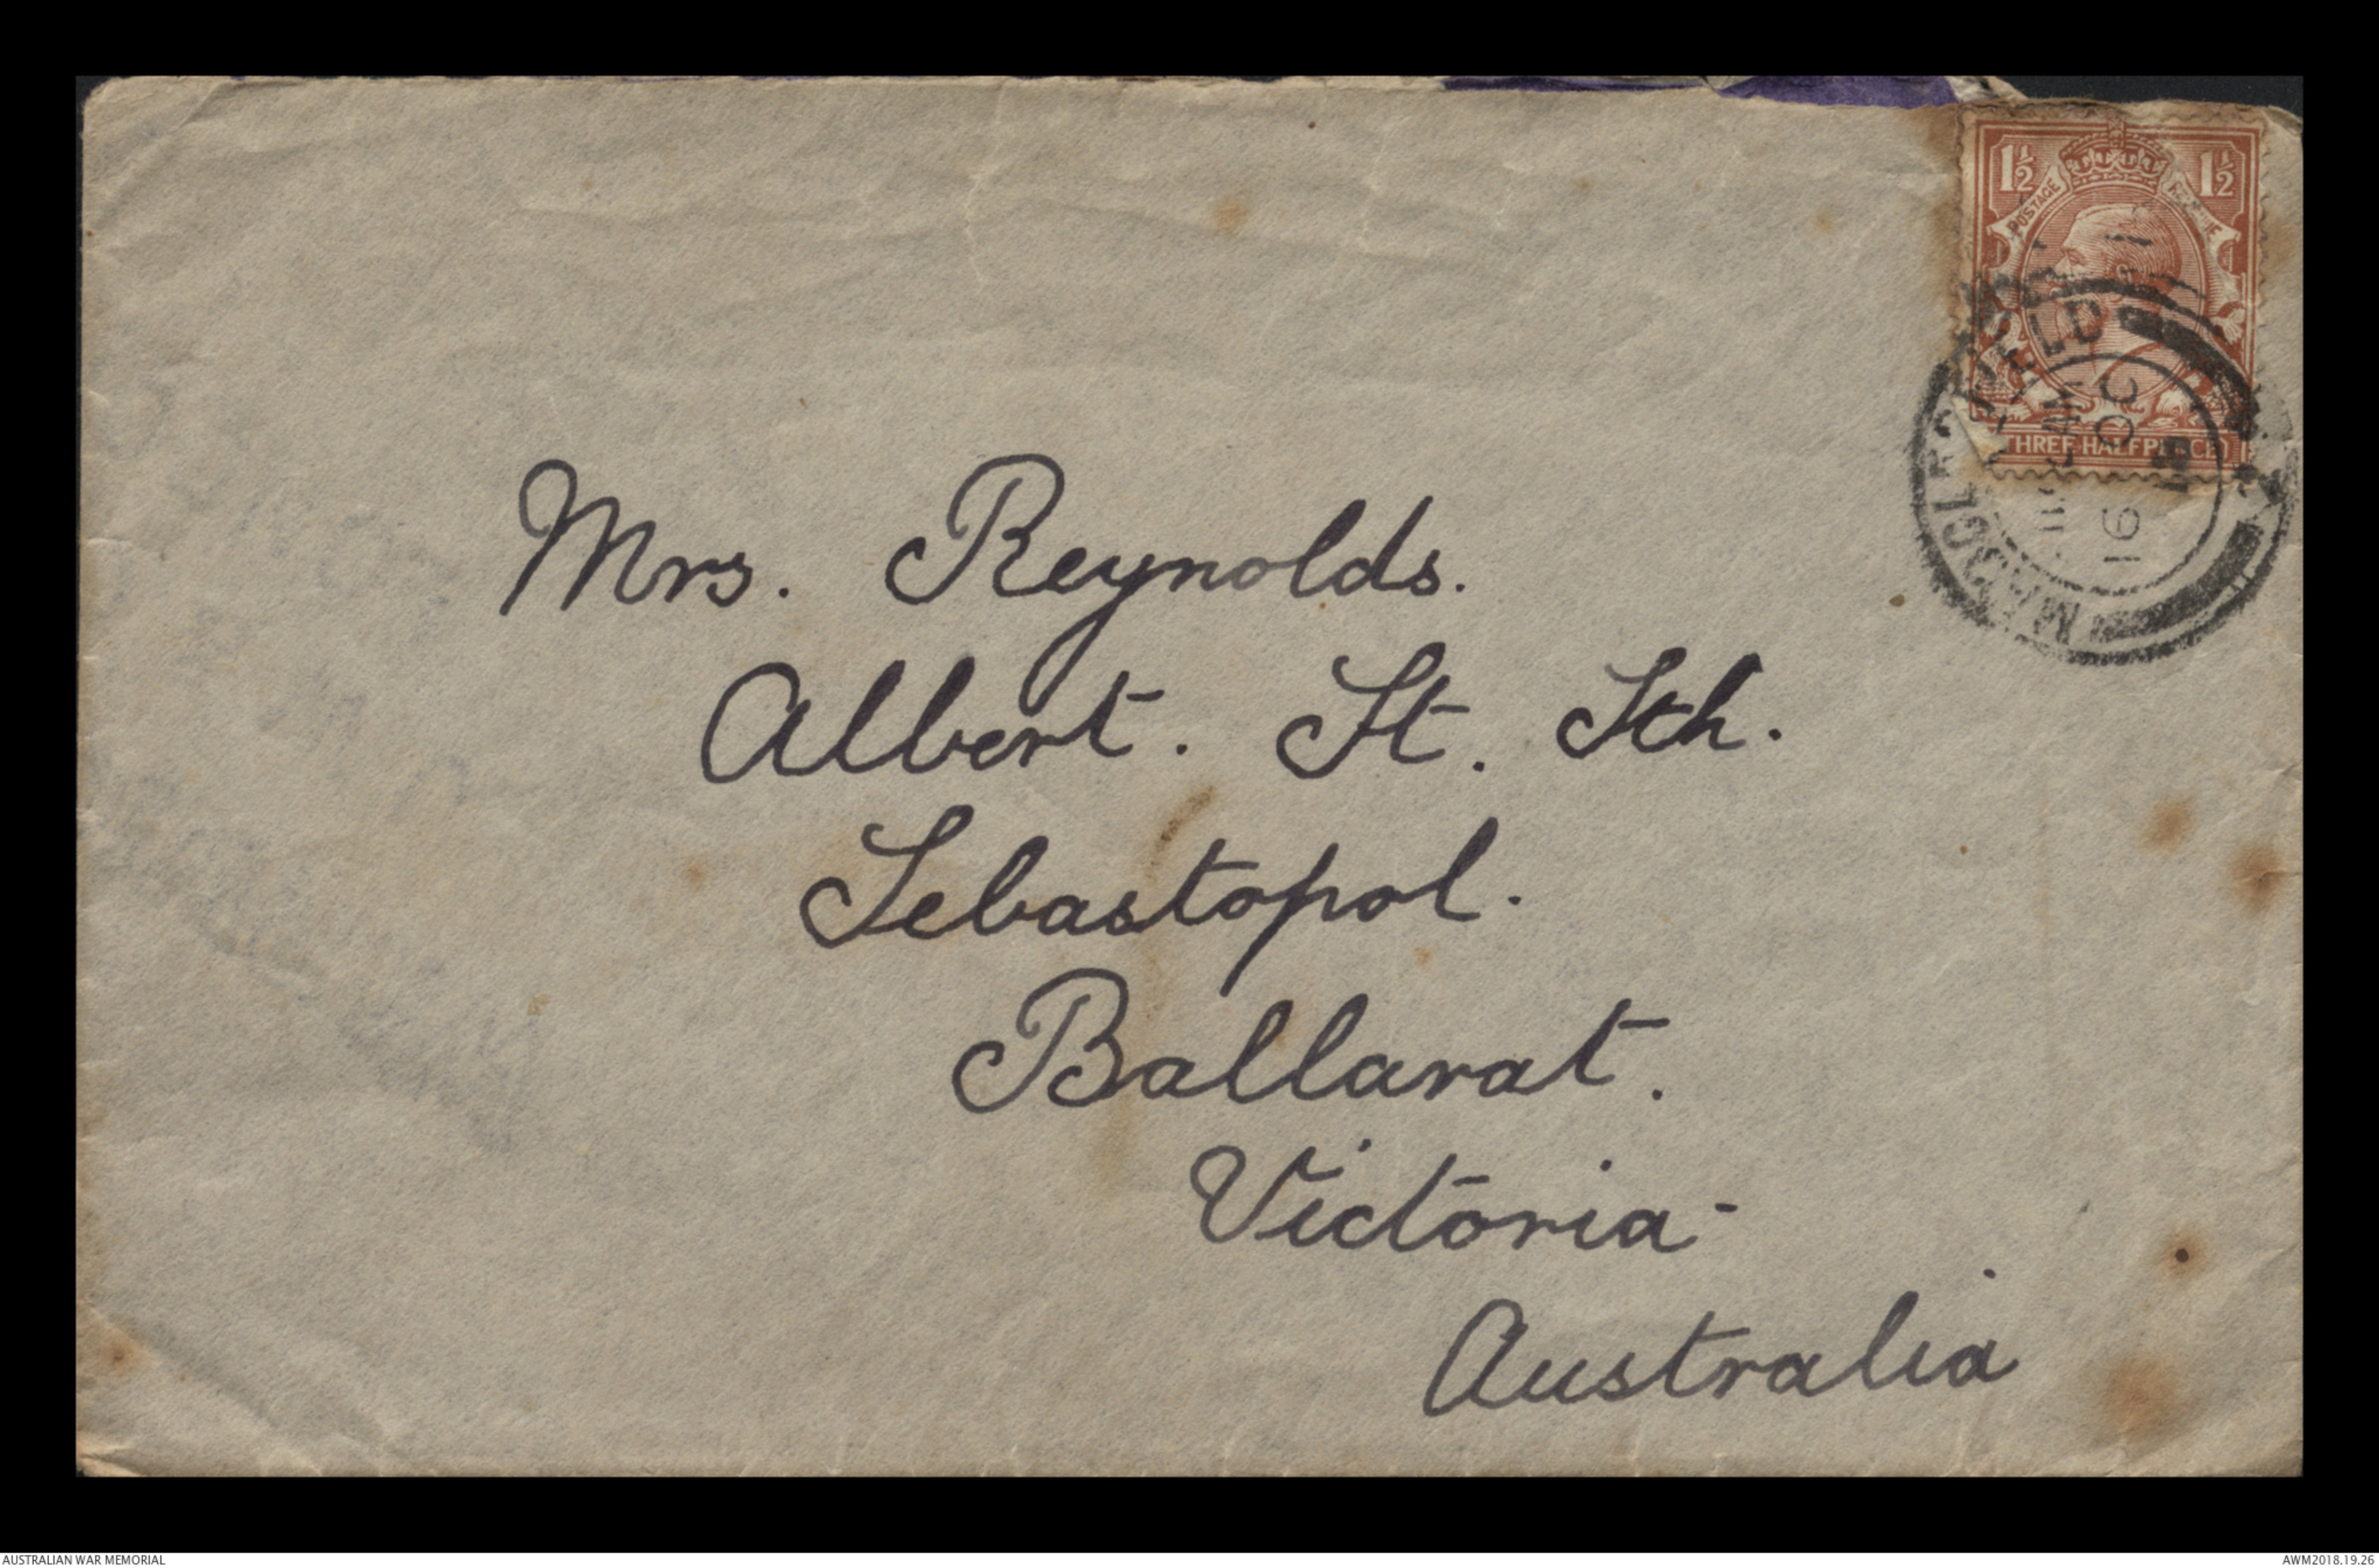 1½ 1½
POSTAGE REVENUE
THREE HALFPENCE
MACCLESFIELD
AM
16 OC
Mrs. Reynolds.
Albert. St. Sth.
Sebastopol.
Ballarat.
Victoria-
Australia
AUSTRALIAN WAR MEMORIAL AWM2018.19.26